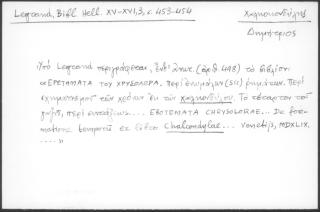 Legrand, Bibl. Hell. XV-XVI,3, σ. 453-454
Χαλκοκονδύλης
Δημήτριος
Ὑπὸ Legrand περιγράφεται, ἐπ' (ἀρ. 498) τὸ βιβλίον
«ΕΡΩΤΗΜΑΤΑ ΤΟΥ ΧΡΥΣΟΛΩΡΑ. Περὶ ἀνωμάλων (sic) ῥημάτων. Περὶ
σχηματισμοῦ τῶν χρόνων ἐκ τῶν Χαλκονδύλου. Τὸ τέταρτον τοῦ
γαζῆ, περὶ συντάξεως... EROTEMATA CHRYSOLORAE... De for-
matione temporum ex libro Chalcondylae... Venetijs, MDXLIX.
..... »